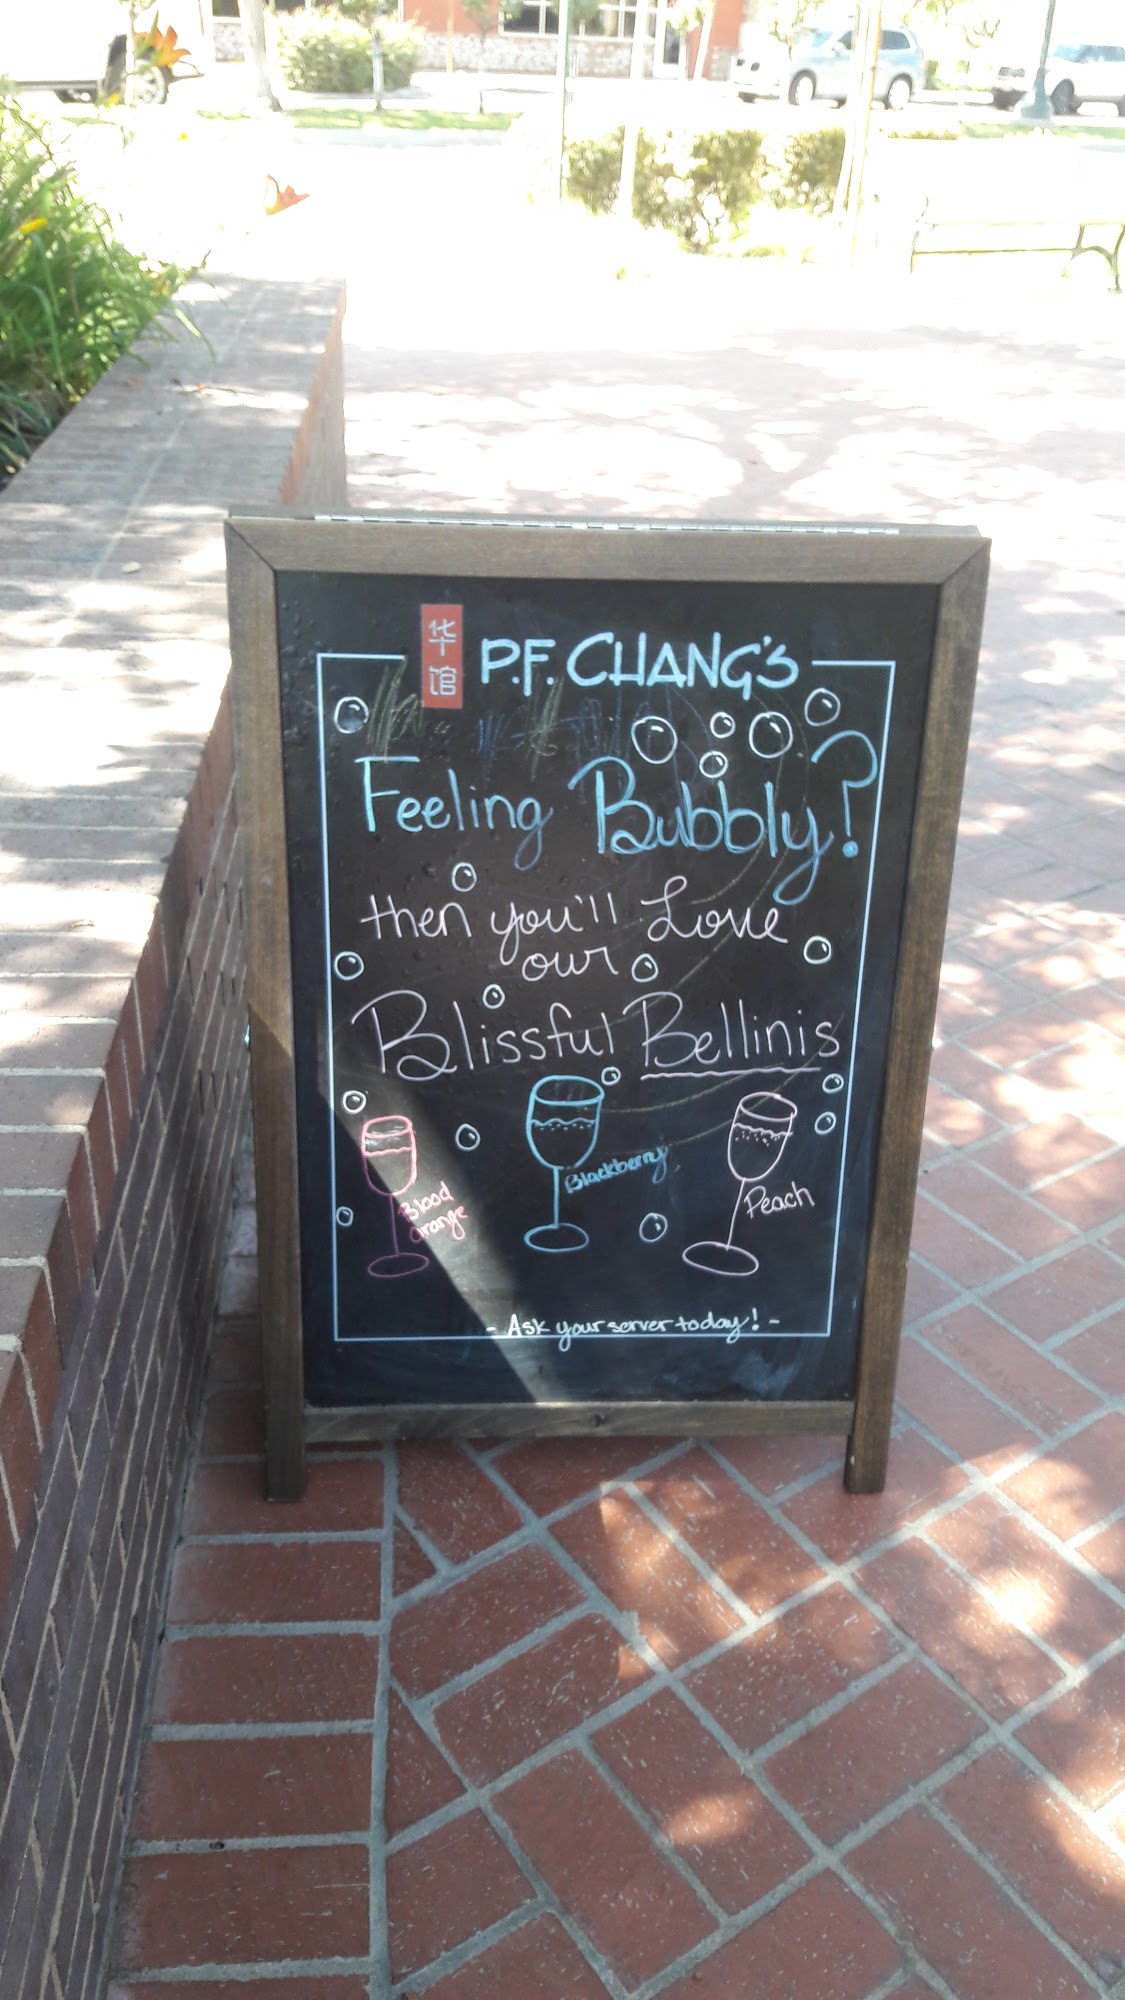 华馆
P.F. CHANG'S
Feeling Bubbly?
then you'll Love
our
Blissful Bellinis
Blood
orange
Blackberry
Peach
- Ask your server today! -